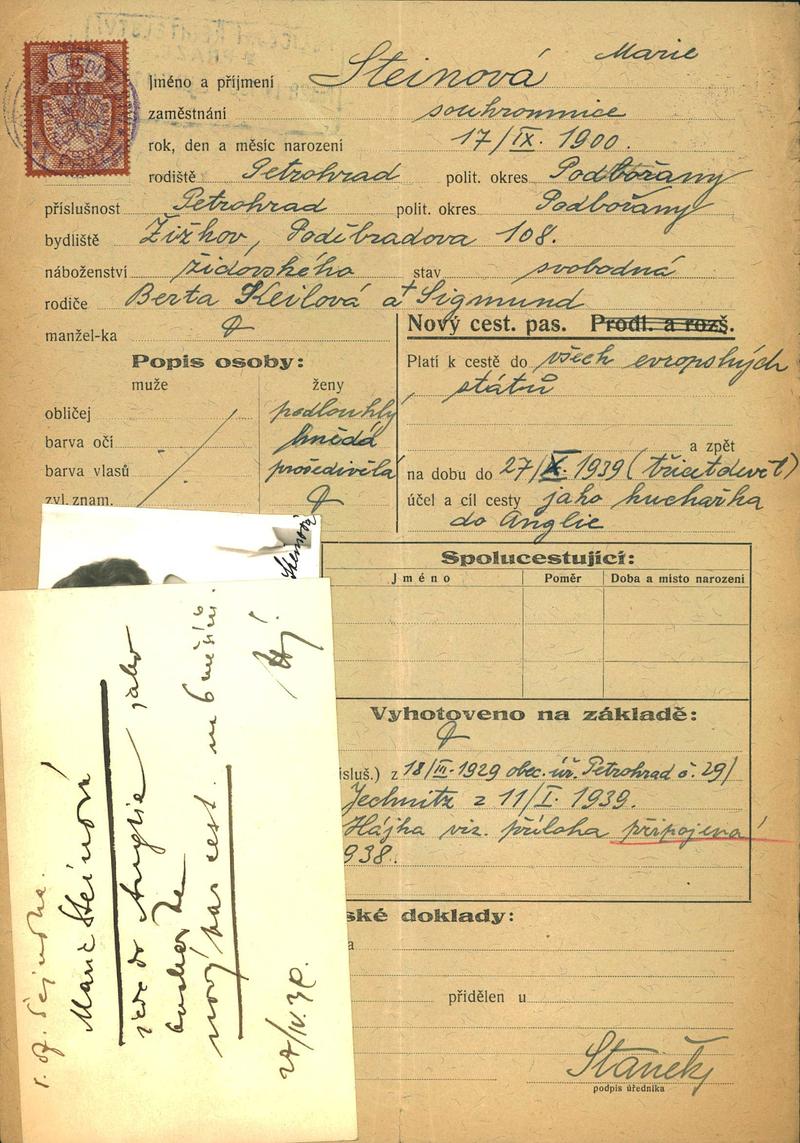 Jméno a příjmení Steinová Marie
zaměstnání soukromnice
rok, den a měsíc narození 17/IX. 1900.
rodiště Petrohrad polit. okres Podbořany
příslušnost Petrohrad polit. okres Podbořany
bydliště Žižkov, Poděbradova 108.
náboženství židovského stav svobodná
rodiče Berta Keilová a †Sigmund
manžel-ka
Nový cest. pas. Prodl. a rozš.
Popis osoby:
muže ženy
Platí k cestě do všech evropských
států
obličej podlouhlý
barva očí hnědá
barva vlasů prošedivělá
zvl. znam.
a zpět
na dobu do 27/X. 1939 (třicetdevět)
účel a cíl cesty jako kuchařka
do Anglie
Steinová
Spolucestující:
Jméno Poměr Doba a místo narození
Vyhotoveno na základě:
ísluš.) z 18/III. 1929 obec. úř. Petrohrad č. 29/
Jechnitz z 11/I. 1939.
Hájka viz. příloha připojena
938.
ské doklady:
a
přidělen u
Staněk
podpis úředníka
Marie Steinová
jede do Anglie jako
kuchařka
nový pas cest. na 6 měsíců.
27/IV. 39.